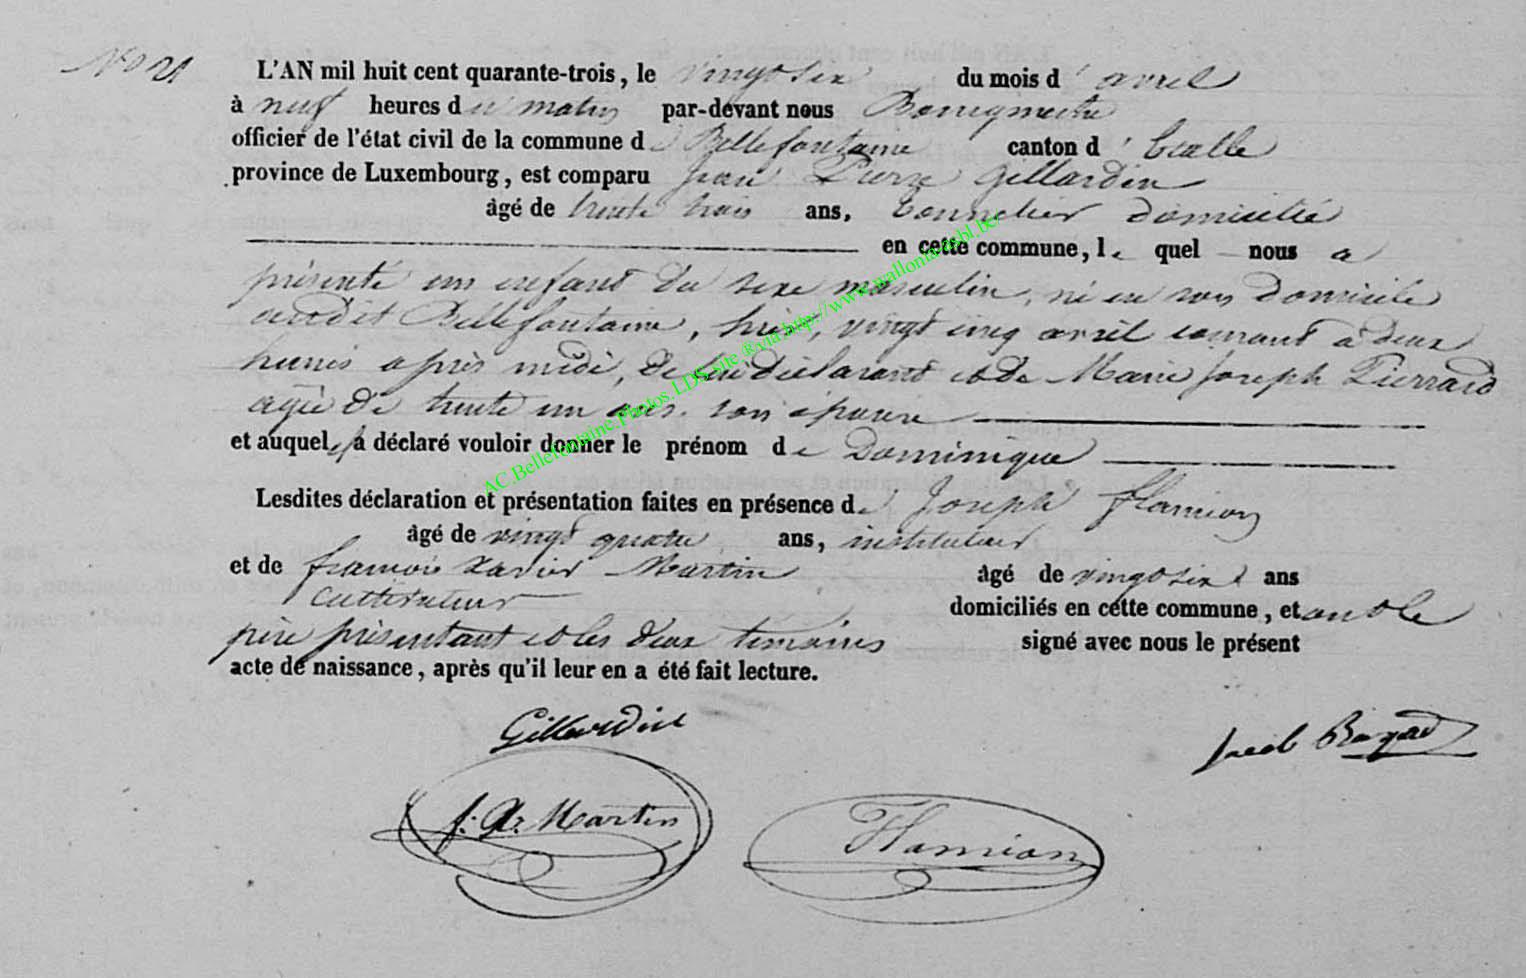 N° 21
L'AN mil huit cent quarante-trois, le vingt six du mois d'avril
à neuf heures du matin par-devant nous Bourgmestre
officier de l'état civil de la commune de Bellefontaine canton d'Etalle
province de Luxembourg, est comparu Jean Pierre Gillardin
âgé de trente trois ans, tonnelier domicilié
en cette commune, le quel nous a
présenté un enfant du sexe masculin, né en son domicile
audit Bellefontaine, hier, vingt cinq avril courant à deux
heures après midi, de lui déclarant et de Marie Joseph Pierrard
agée de trente un ans son épouse
et auquel il a déclaré vouloir donner le prénom de Dominique
Lesdites déclaration et présentation faites en présence de Joseph Flamion
âgé de vingt quatre ans, instituteur
et de françois Xavier Martin âgé de vingt six ans
cultivateur domiciliés en cette commune, et ont le
père présentant et les deux temoins signé avec nous le présent
acte de naissance, après qu'il leur en a été fait lecture.
Gillardin
f. X. Martin
Flamion
AC.Bellefontaine.Photos.LDS.site ®via.http://www.wallonia-asbl.be/